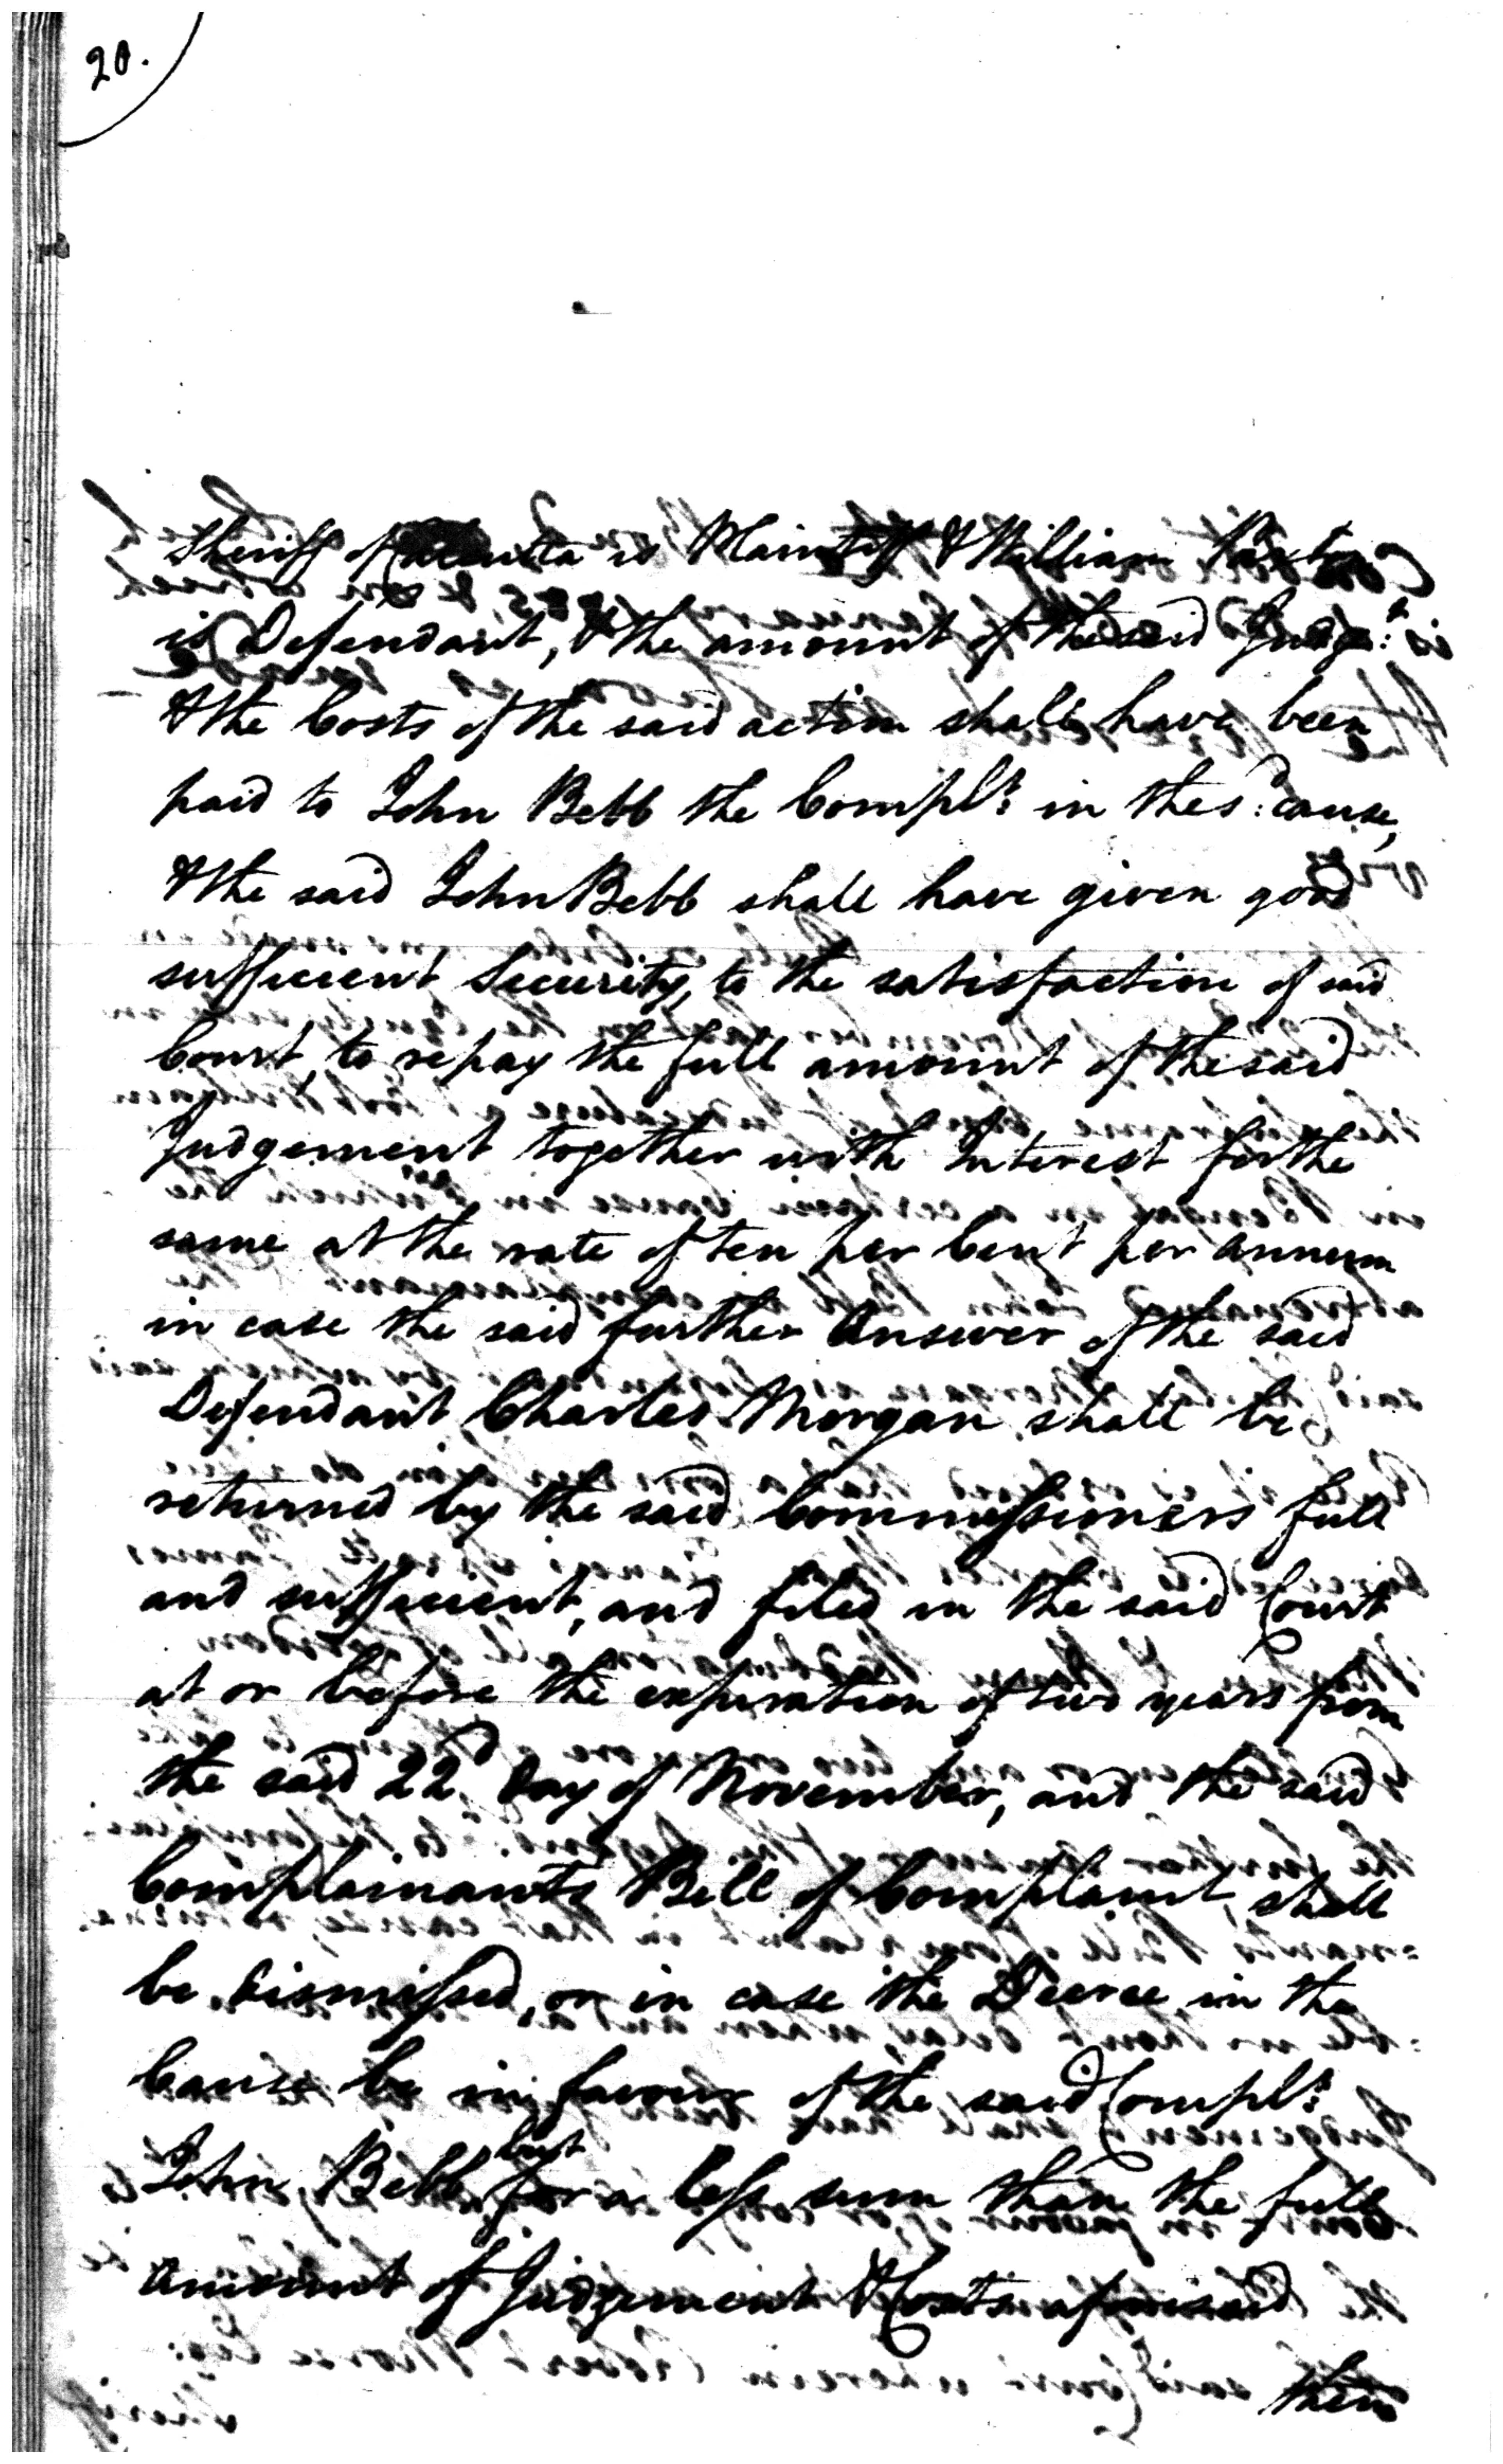 20.
Sheriff of Calcutta is Plaintiff & William Paxton
is Defendant, & the amount of the said Judgt:
& the Costs of the said action shall have been
paid to John Bebb the Complt: in the sd: cause,
& the said John Bebb shall have given good
sufficient Security, to the satisfaction of said
Court, to repay the full amount of the said
Judgement together with Interest for the
same at the rate of ten per Cent per annum
in case the said further Answer of the said
Defendant Charles Morgan shall be
returned by the said Commissioners full
and sufficient, and filed in the said Court
at or before the expiration of two years from
the said 22d Day of November, and the said
Complainants Bill of Complaint, shall
be dismissed, or in case the Decree in the
Cause be in favour of the said Complt:
John Bebb but for a less sum than the full
Amount of Judgement & Costs aforesaid
then